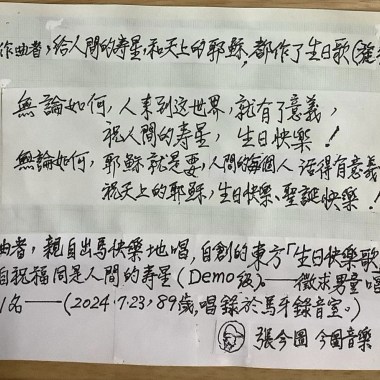 作曲者，給人間的寿星，和天上的耶穌，都作了生日歌(
無論如何，人来到这世界，就有了意義，
祝人間的寿星，生日快樂！
無論如何，耶穌就是要，人間的每個人 活得有意義
祝天上的耶穌，生日快樂、聖誕快樂！
曲者，親自出馬快樂地唱，自創的東方「生日快樂歌
自祝福同是人間的寿星(Demo級)。——徵求男童唱
1名——(2024.7.23，89歲，唱錄於馬牙錄音室。)
張今圖 今圖音樂